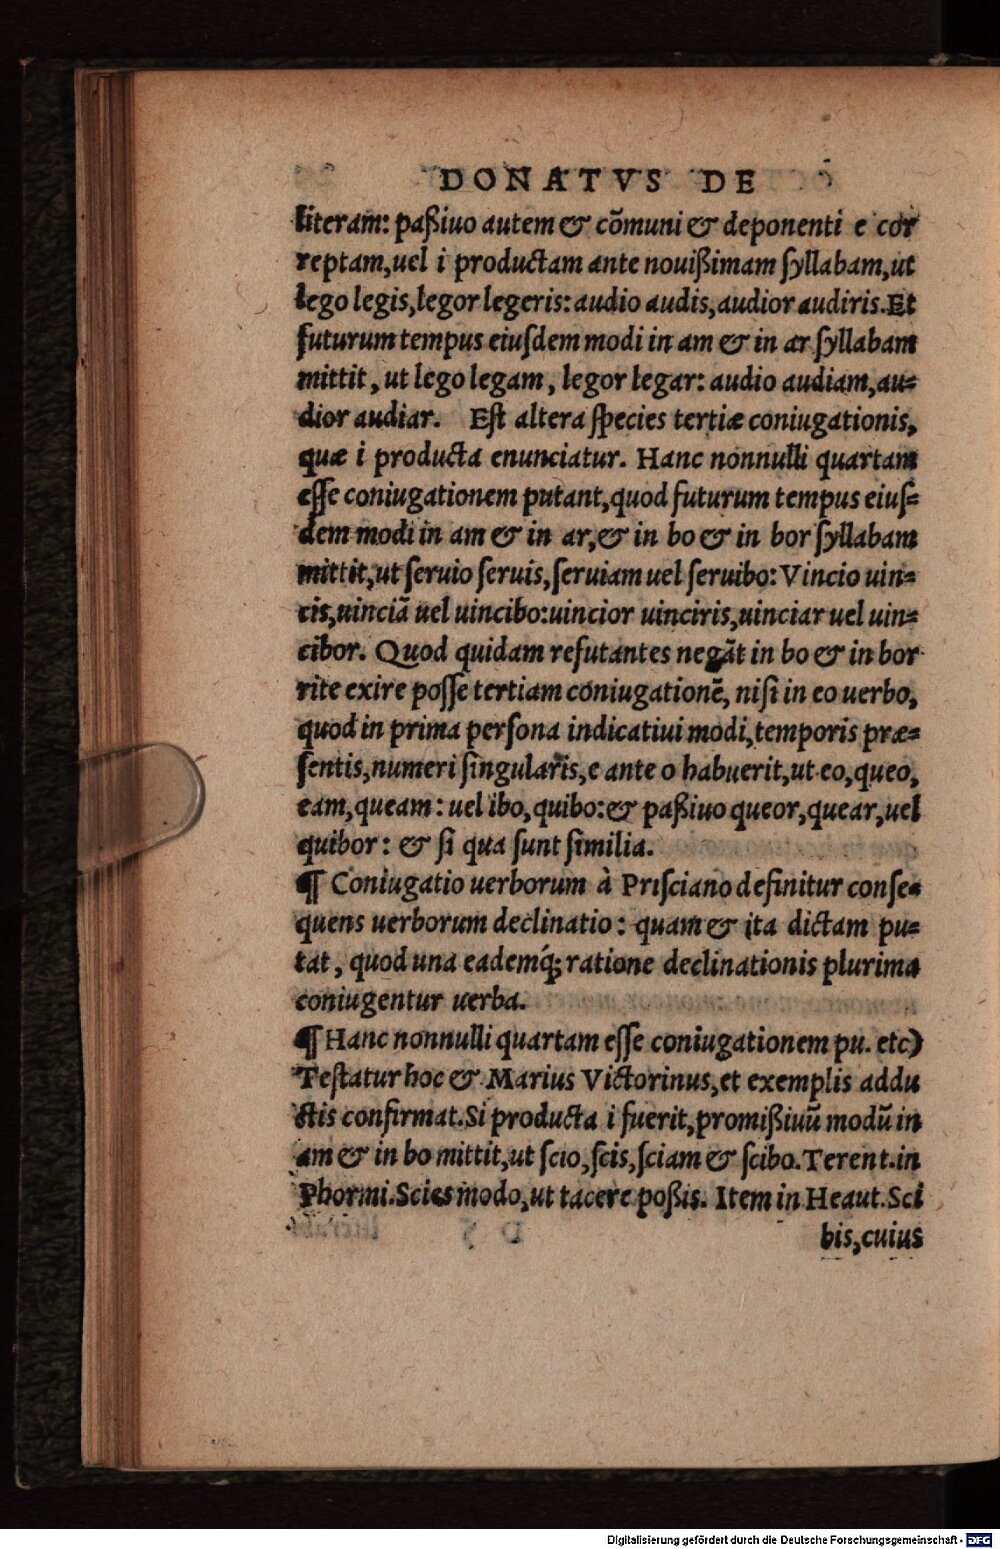 DONATVS DE
literam: paßiuo autem & cõmuni & deponenti e cor
reptam, uel i productam ante nouißimam ſyllabam, ut
lego legis, legor legeris: audio audis, audior audiris. Et
futurum tempus eiuſdem modi in am & in ar ſyllabam
mittit, ut lego legam, legor legar: audio audiam, au-
dior audiar. Eſt altera ſpecies tertiæ coniugationis,
quæ i producta enunciatur. Hanc nonnulli quartam
eſſe coniugationem putant, quod futurum tempus eiuſ-
dem modi in am & in ar, & in bo & in bor ſyllabam
mittit, ut ſeruio ſeruis, ſeruiam uel ſeruibo: Vincio uin-
cis, uinciã uel uincibo: uincior uinciris, uinciar uel uin-
cibor. Quod quidam refutantes negãt in bo & in bor
rite exire poſſe tertiam coniugationẽ, niſi in eo uerbo,
quod in prima perſona indicatiui modi, temporis præ-
ſentis, numeri ſingularis, e ante o habuerit, ut eo, queo,
eam, queam: uel ibo, quibo: & paßiuo queor, quear, uel
quibor: & ſi qua ſunt ſimilia.
¶ Coniugatio uerborum à Priſciano definitur conſe-
quens uerborum declinatio: quam & ita dictam pu-
tat, quod una eademq́; ratione declinationis plurima
coniugentur uerba.
¶ Hanc nonnulli quartam eſſe coniugationem pu. etc)
Teſtatur hoc & Marius Victorinus, et exemplis addu
ctis confirmat. Si producta i fuerit, promißiuũ modũ in
am & in bo mittit, ut ſcio, ſcis, ſciam & ſcibo. Terent. in
Phormi. Scies modo, ut tacere poßis. Item in Heaut. Sci
bis, cuius
Digitalisierung gefördert durch die Deutsche Forschungsgemeinschaft - DFG